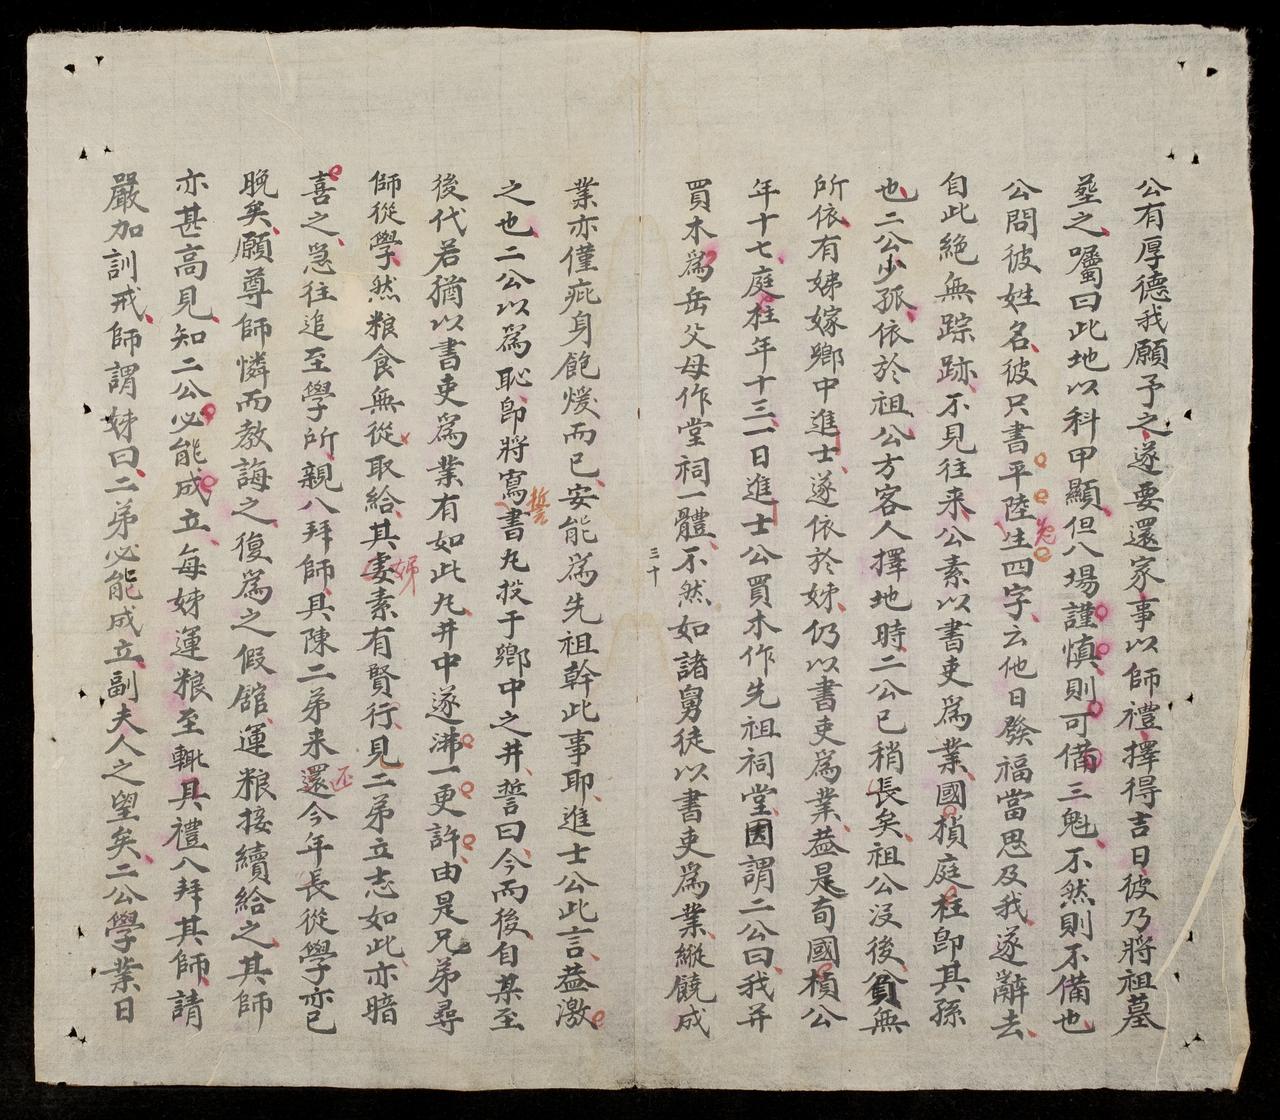 公有厚德我願予之遂要還家事以師禮擇得吉日彼乃將祖墓
塟之囑曰此地以科甲顯但八場謹慎則可備三魁不然則不備也
公問彼姓名彼只書平陸生四字云他日發福當思及我遂辭去
自此絕無踪跡不見往来公素以書吏爲業國楨庭柱卽其孫
也二公少孤依於祖公方客人擇地時二公已稍長矣祖公没後貧無
所依有姊嫁鄉中進士遂依於姊仍以書吏爲業葢是旬國楨公
年十七庭柱年十三一日進士公買木作先祖祠堂因謂二公曰我并
買木爲岳父母作堂祠一體不然如諸舅徒以書吏爲業縱饒成
三十
業亦僅疪身飽煖而已安能爲先祖幹此事耶進士公此言葢激
之也二公以爲恥卽將寫書丸投于鄉中之井誓曰今而後自某至
誓
後代若猶以書吏爲業有如此丸井中遂沸一更許由是兄弟尋
師從學然粮食無從取給其妻素有賢行見二弟立志如此亦暗
姊
喜之急往追至學所親八拜師具陳二弟来還今年長從學亦已
晚矣願尊師憐而教誨之復爲之假舘運粮接續給之其師
亦甚高見知二公必能成立每姊運粮至輒具禮八拜其師請
嚴加訓戒師謂姊曰二弟必能成立副夫人之望矣二公學業日